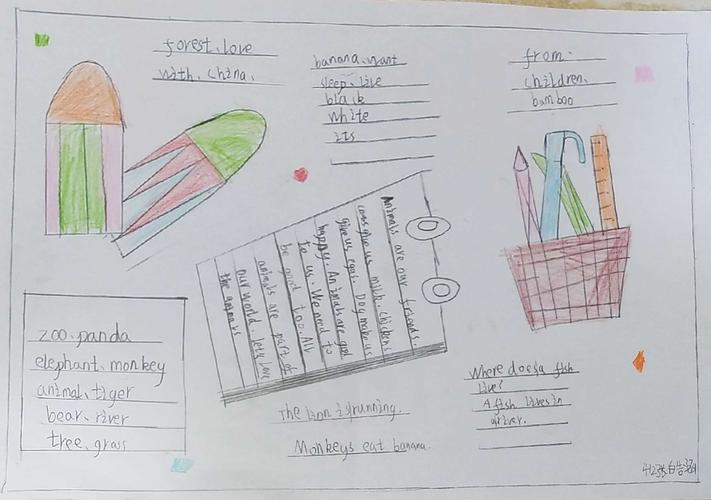 forest、love
with、china、
banana、want
sleep、live
black
white
its
from、
children、
bamboo
Animals are our friends.
cows give us milk. chickens
give us eggs. Dog make us
happy. Animals are good
to us. We need to
be good too. All
animals are part of
our world. let's love
the animals
zoo、panda
elephant、monkey
animal、tiger
bear、river
tree、grass
The lion is running.
Monkeys eat banana.
Where does a fish
live?
A fish lives in
ariver.